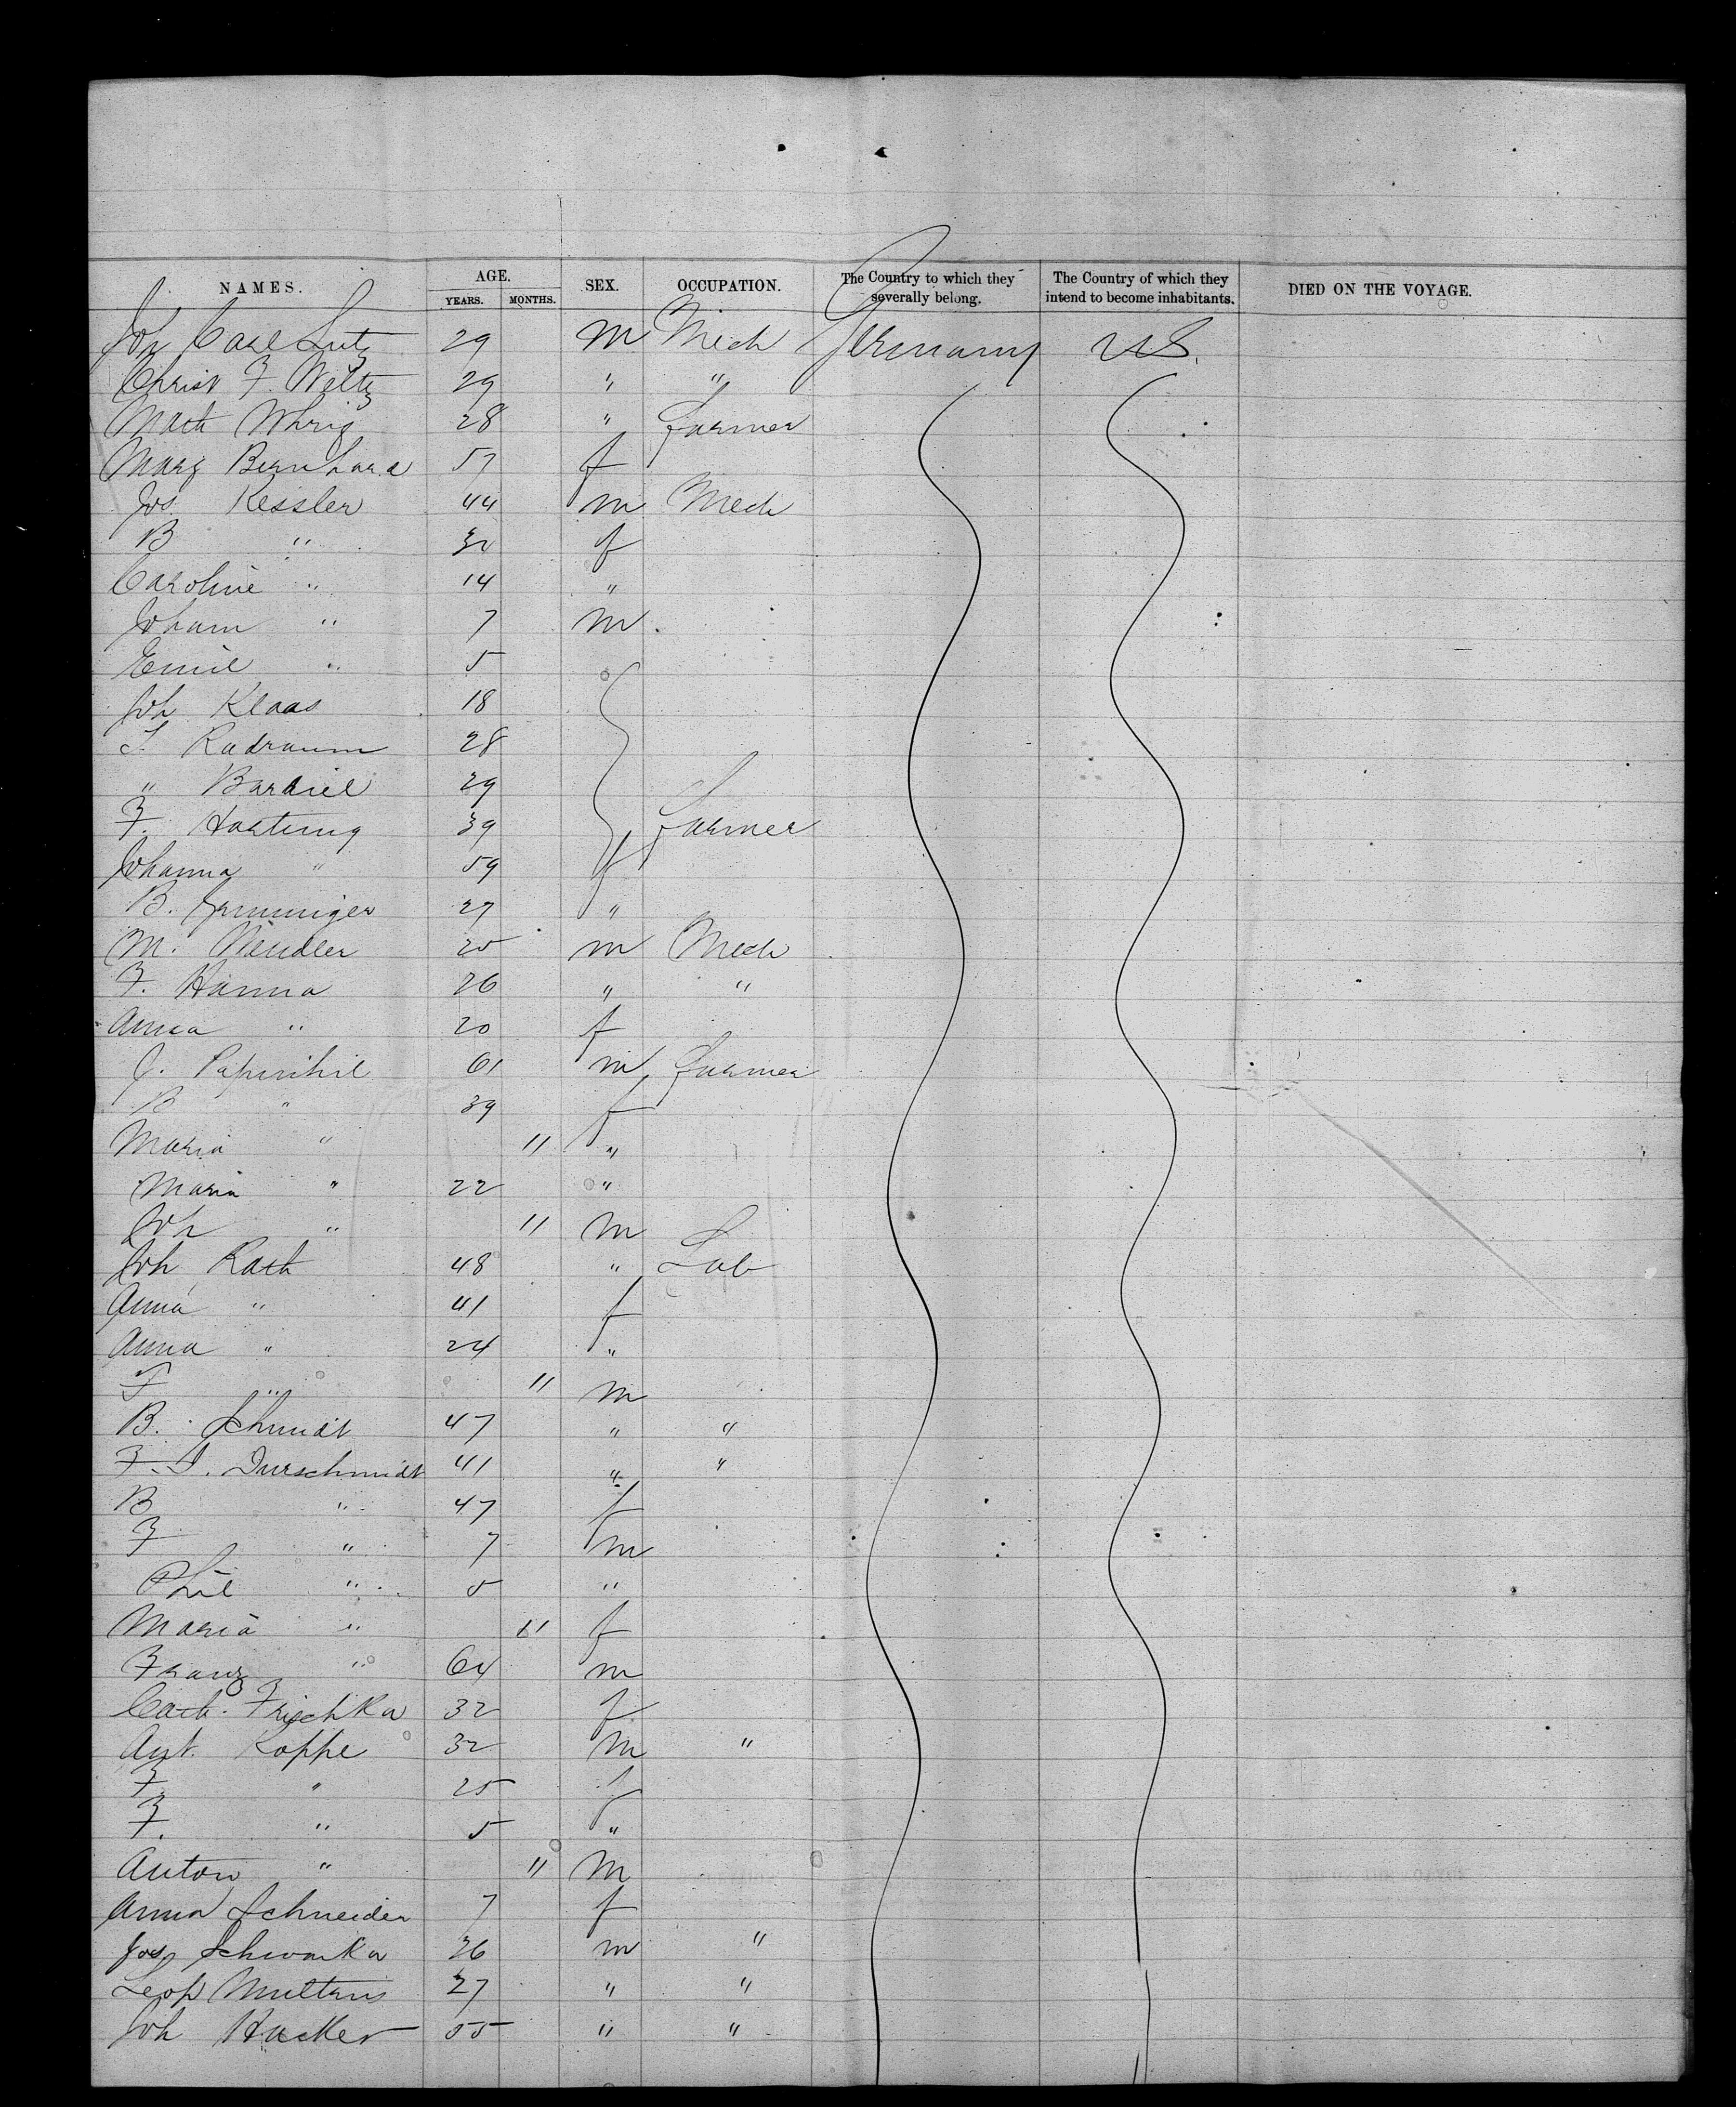 NAMES. AGE. SEX. OCCUPATION. The Country to which they severally belong. The Country of which they intend to become inhabitants. DIED ON THE VOYAGE.
YEARS. MONTHS.
Joh Carl Lutz 29 m Mech Germany US.
Christ F. Wiltz 29 " "
Math Whrig 28 " farmer
Marg Bernhard 57 f
Jos. Kessler 44 m Mech
B " 30 f
Caroline " 14 "
Joham " 7 m
Emil " 5
Joh Klaas 18
28
" 29
F. Hartung 39 farmer
Johanna " 59 f
B. 27 "
M. 25 m Mech
F. Hanna 26 " "
Anna " 20 f
J. 61 m farmer
B " 39 f
Maria " 11 "
Maria " 22 "
Joh " 11 m
Joh Rath 48 " Lab
Anna " 41 f
Anna " 24 "
F " 11 m
B. Schmidt 47 " "
F. J. Durschmidt 41 " "
B " 47 f
F " 7 m
Phil " 5 "
Maria " 11 f
Franz " 64 m
Cath. Frischka 32 f
Ant. Koppe 32 m "
F. " 25 f
F. " 5 "
Anton " 11 m
Anna Schneider 7 f
Jos Schwanka 26 m "
Leop 27 " "
Joh Hacker 55 " "